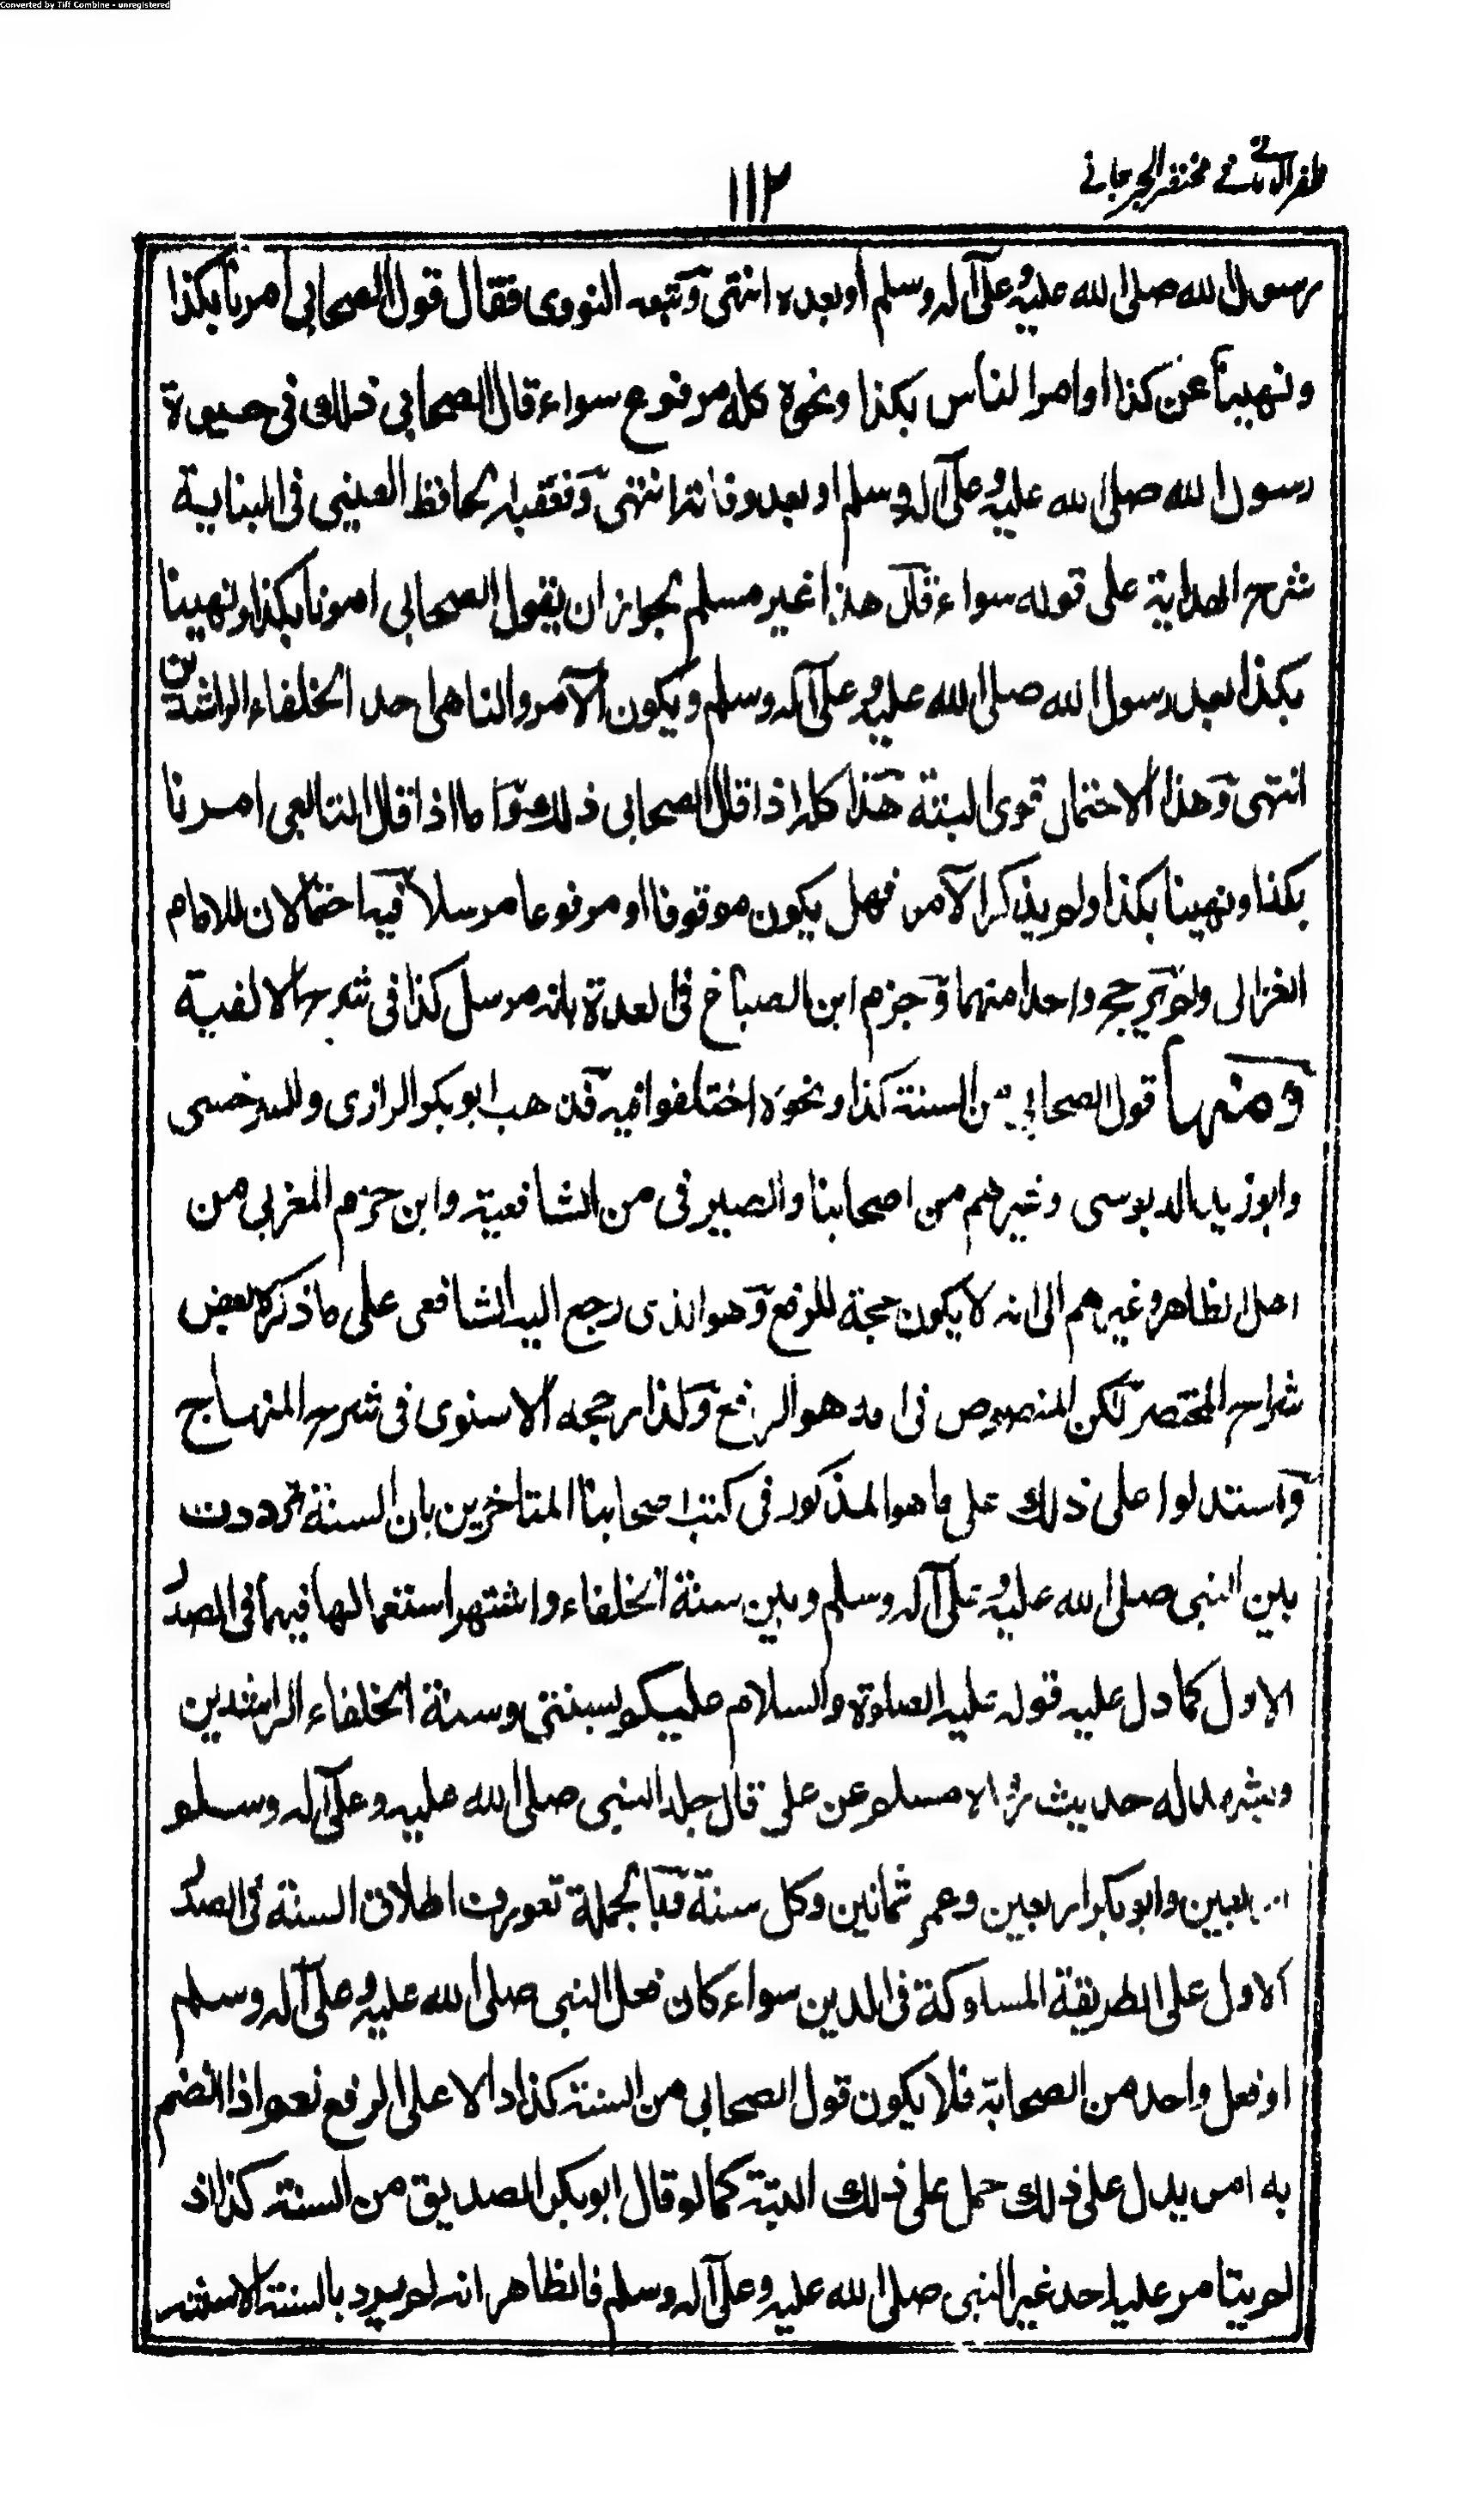 Converted by Tiff Combine - unregistered
ظفر الامانے فے مختصر الجرجانے
١١٢
رسول الله صلى الله عليه وعلى آله وسلم او بعده انتهى وتبعه النووى فقال قول الصحابي امرنا بكذا
ونهينا عن كذا او امر الناس بكذا ونحوه كله مرفوع سواء قال الصحابي ذلك فى حيوة
رسول الله صلى الله عليه وعلى آله وسلم او بعد وفاته انتهى وتعقبه الحافظ العينى فى البناية
شرح الهداية على قوله سواء قال هذا غير مسلم لجواز ان يقول الصحابي امرنا بكذا ونهينا
بكذا بعد رسول الله صلى الله عليه وعلى آله وسلم ويكون الآمر والناهى احد الخلفاء الراشدين
انتهى وهذا الاحتمال قوى البتة هذا كله اذا قال الصحابى ذلك واما اذا قال التابعى امرنا
بكذا ونهينا بكذا ولم يذكر الآمر فهل يكون موقوفا او مرفوعا مرسلا فيه احتمالان للامام
الغزالى ولم يرجح واحدا منهما وجزم ابن الصباغ فى العدة بانه مرسل كذا فى شرح الالفية
ومنها قول الصحابي من السنة كذا ونحوه اختلفوا فيه فذهب ابو بكر الرازى والسرخسى
وابو زيد الدبوسى وغيرهم من اصحابنا والصيرفى من الشافعية وابن حزم المغربى من
اهل الظاهر وغيرهم الى انه لا يكون حجة للرفع وهو الذى رجع اليه الشافعى على ما ذكره بعض
شراح المختصر لكن المنصوص فى الام هو الرفع وكذا رجحه الاسنوى فى شرح المنهاج
واستدلوا على ذلك على ما هو المذكور فى كتب اصحابنا المتاخرين بان السنة ترددت
بين النبى صلى الله عليه وعلى آله وسلم وبين سنة الخلفاء واشتهر استعمالها فيهما فى الصدر
الاول كما دل عليه قوله عليه الصلوة والسلام عليكم بسنتى وسنة الخلفاء الراشدين
ويشهد له حديث رواه مسلم عن على قال جلد النبى صلى الله عليه وعلى آله وسلم
اربعين وابو بكر اربعين وعمر ثمانين وكل سنة فبالجملة تعورف اطلاق السنة فى الصدر
الاول على الطريقة المسلوكة فى الدين سواء كان فعل النبى صلى الله عليه وعلى آله وسلم
او فعل واحد من الصحابة فلا يكون قول الصحابى من السنة كذا دالا على الرفع نعم اذا انضم
به امر يدل على ذلك حمل على ذلك البتة كما لو قال ابو بكر الصديق من السنة كذا اذ
لم يتامر عليه احد غير النبى صلى الله عليه وعلى آله وسلم فالظاهر انه لم يرد بالسنة الا سنته